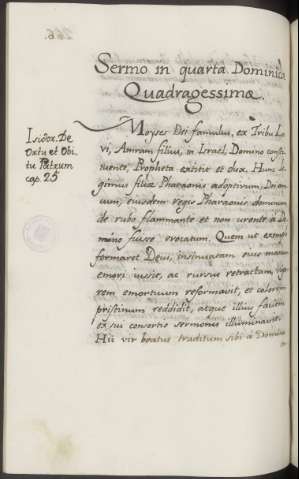 266.
Sermo in quarta Dominica
Quadragessimæ.
Isidor. De
Ortu et Obi,
tu Patrum
cap. 25
Moyses Dei famulus, ex Tribu Le,
vi, Amram filius, in Israel Domino consti,
tuente, Propheta extitit et dux. Hunc le,
gimus filiæ Pharaonis adoptivum, Dei ami,
cum, eiusdem regis Pharaonis dominum
de rubo flammante et non urente à Do,
mino fuisse vocatum. Quem ut
formaret Deus, insinuatam eius manum
emori iussit, ac rursus retractam,
rem emortuum reformavit, et colorem
pristinum reddidit, atque illius faciem
ex sui consortio sermonis illuminavit.
Hii vir beatus traditum sibi à Domino